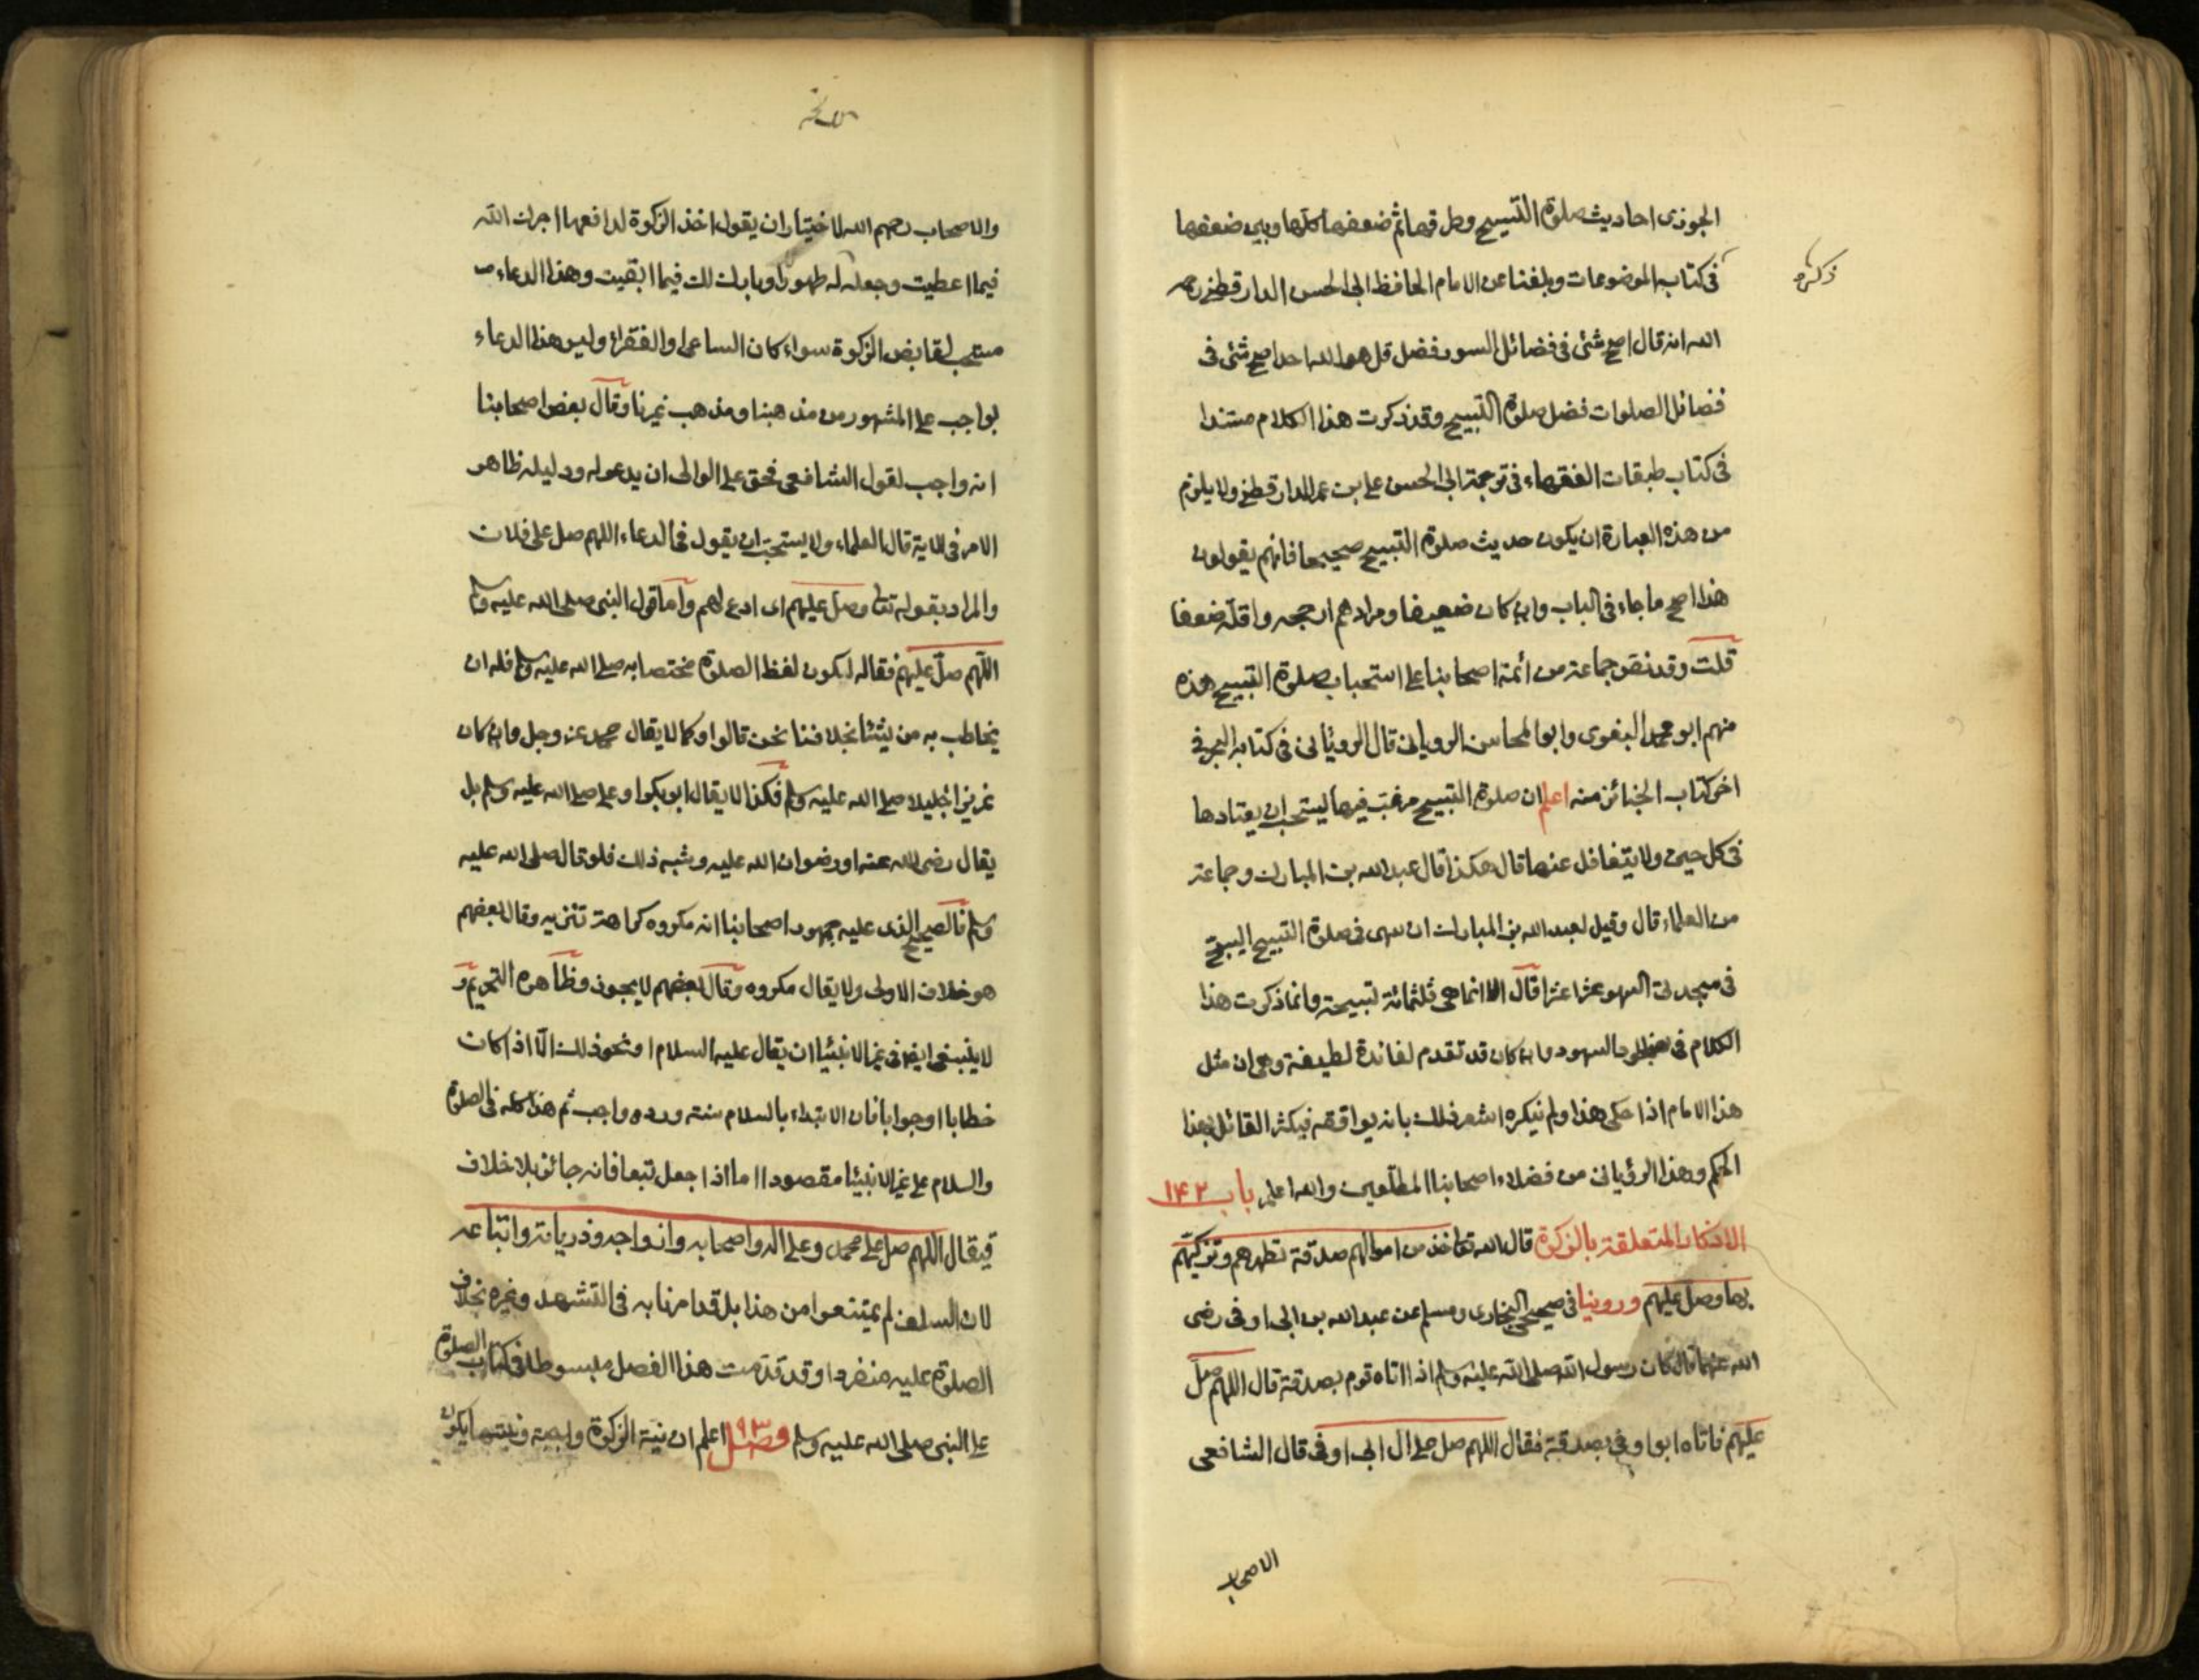 الجوزى احاديث صلوة التسبيح وطرقها ثم ضعفها كلها وبين ضعفها
ذكره
فى كتاب الموضوعات وبلغنا عن الامام الحافظ ابى الحسن الدارقطنى رحمه
الله انه قال اصح شئ فى فضائل السور فضل قل هو الله احد اصح شئ فى
فضائل الصلوات فضل صلوة التسبيح وقد ذكرت هذا الكلام مسندا
فى كتاب طبقات الفقهاء فى ترجمة ابى الحسن على بن عمر الدارقطنى ولا يلزم
من هذه العبارة ان يكون حديث صلوة التسبيح صحيحا فانهم يقولون
هذا اصح ما جاء فى الباب وان كان ضعيفا ومرادهم ارجحه واقله ضعفا
قلت وقد نص جماعة من أئمة اصحابنا على استحباب صلوة التسبيح هذه
منهم ابو محمد البغوى وابو المحاسن الرويانى قال الرويانى فى كتابه البحر فى
اخر كتاب الجنائز منه اعلم ان صلوة التسبيح مرغب فيها يستحب ان يعتادها
فى كل حين ولا يتغافل عنها قال هكذا قال عبد الله بن المبارك وجماعة
من العلماء قال وقيل لعبد الله بن المبارك ان سهى فى صلوة التسبيح ايسبح
فى سجدتى السهو عشرا عشرا قال لا انما هى ثلثمائة تسبيحة وانما ذكرت هذا
الكلام فى سجود السهو وان كان قد تقدم لفائدة لطيفة وهى ان مثل
هذا الامام اذا حكى هذا ولم ينكره اشعر ذلك بانه يوافقه فيكثر القائل بهذا
الحكم وهذا الرؤيانى من فضلاء اصحابنا المطلعين والله اعلم باب ١۴٢
الاذكار المتعلقة بالزكوة قال الله تعا خذ من اموالهم صدقة تطهرهم وتزكيهم
بها وصل عليهم وروينا فى صحيحى البخارى ومسلم عن عبد الله بن ابى اوفى رضى
الله عنهما قال كان رسول الله صلى الله عليه وسلم اذا اتاه قوم بصدقة قال اللهم صل
عليهم فاتاه ابو اوفى بصدقة فقال اللهم صل على ال ابى اوفى قال الشافعى
الاصحاب
والاصحاب رحمهم الله الاختيار ان يقول اخذ الزكوة لدافعها اجرك الله
فيما اعطيت وجعله له طهورا وبارك لك فيما ابقيت وهذا الدعاء
مستحب لقابض الزكوة سواء كان الساعى او الفقراء وليس هذا الدعاء
بواجب على المشهور من مذهبنا ومذهب غيرنا وقال بعض اصحابنا
انه واجب لقول الشافعى فحق على الوالى ان يدعو له ودليله ظاهر
الامر فى الاية قال العلماء ولا يستحب ان يقول فى الدعاء اللهم صل على فلان
والمراد بقوله تعا وصل عليهم اى ادع لهم واما قول النبى صلى الله عليه وسلم
اللهم صل عليهم فقاله لكون لفظ الصلوة مختصا به صلى الله عليه وسلم فله ان
يخاطب به من يشأ بخلافنا نحن قالوا وكما لا يقال محمد عز وجل وان كان
عزيزا جليلا صلى الله عليه وسلم فكذا لا يقال ابو بكر او على صلى الله عليه وسلم بل
يقال رضى الله عنه او رضوان الله عليه وشبه ذلك فلو قال صلى الله عليه
وسلم فالصحيح الذى عليه جمهور اصحابنا انه مكروه كراهة تنزيه وقال بعضهم
هو خلاف الاولى ولا يقال مكروه وقال بعضهم لا يجوز وظاهره التحريم و
لا ينبغى ايضا فى غير الانبئيا ان يقال عليه السلام او نحو ذلك الا اذا كان
خطابا او جوابا فان الابتداء بالسلام سنة ورده واجب ثم هذا كله فى الصلوة
والسلام على غير الانبئيا مقصودا اما اذا جعل تبعا فانه جائز بلا خلاف
فيقال اللهم صل على محمد وعلى اله واصحابه وازواجه وذرياته واتباعه
لان السلف لم يمتنعوا من هذا بل قد امرنا به فى التشهد وغيره بخلاف
الصلوة عليه منفردا وقد قدمت هذا الفصل مبسوطا فى كتاب الصلوة
على النبى صلى الله عليه وسلم فصل ٩٣ اعلم ان نية الزكوة واجبة ونيتها يكون